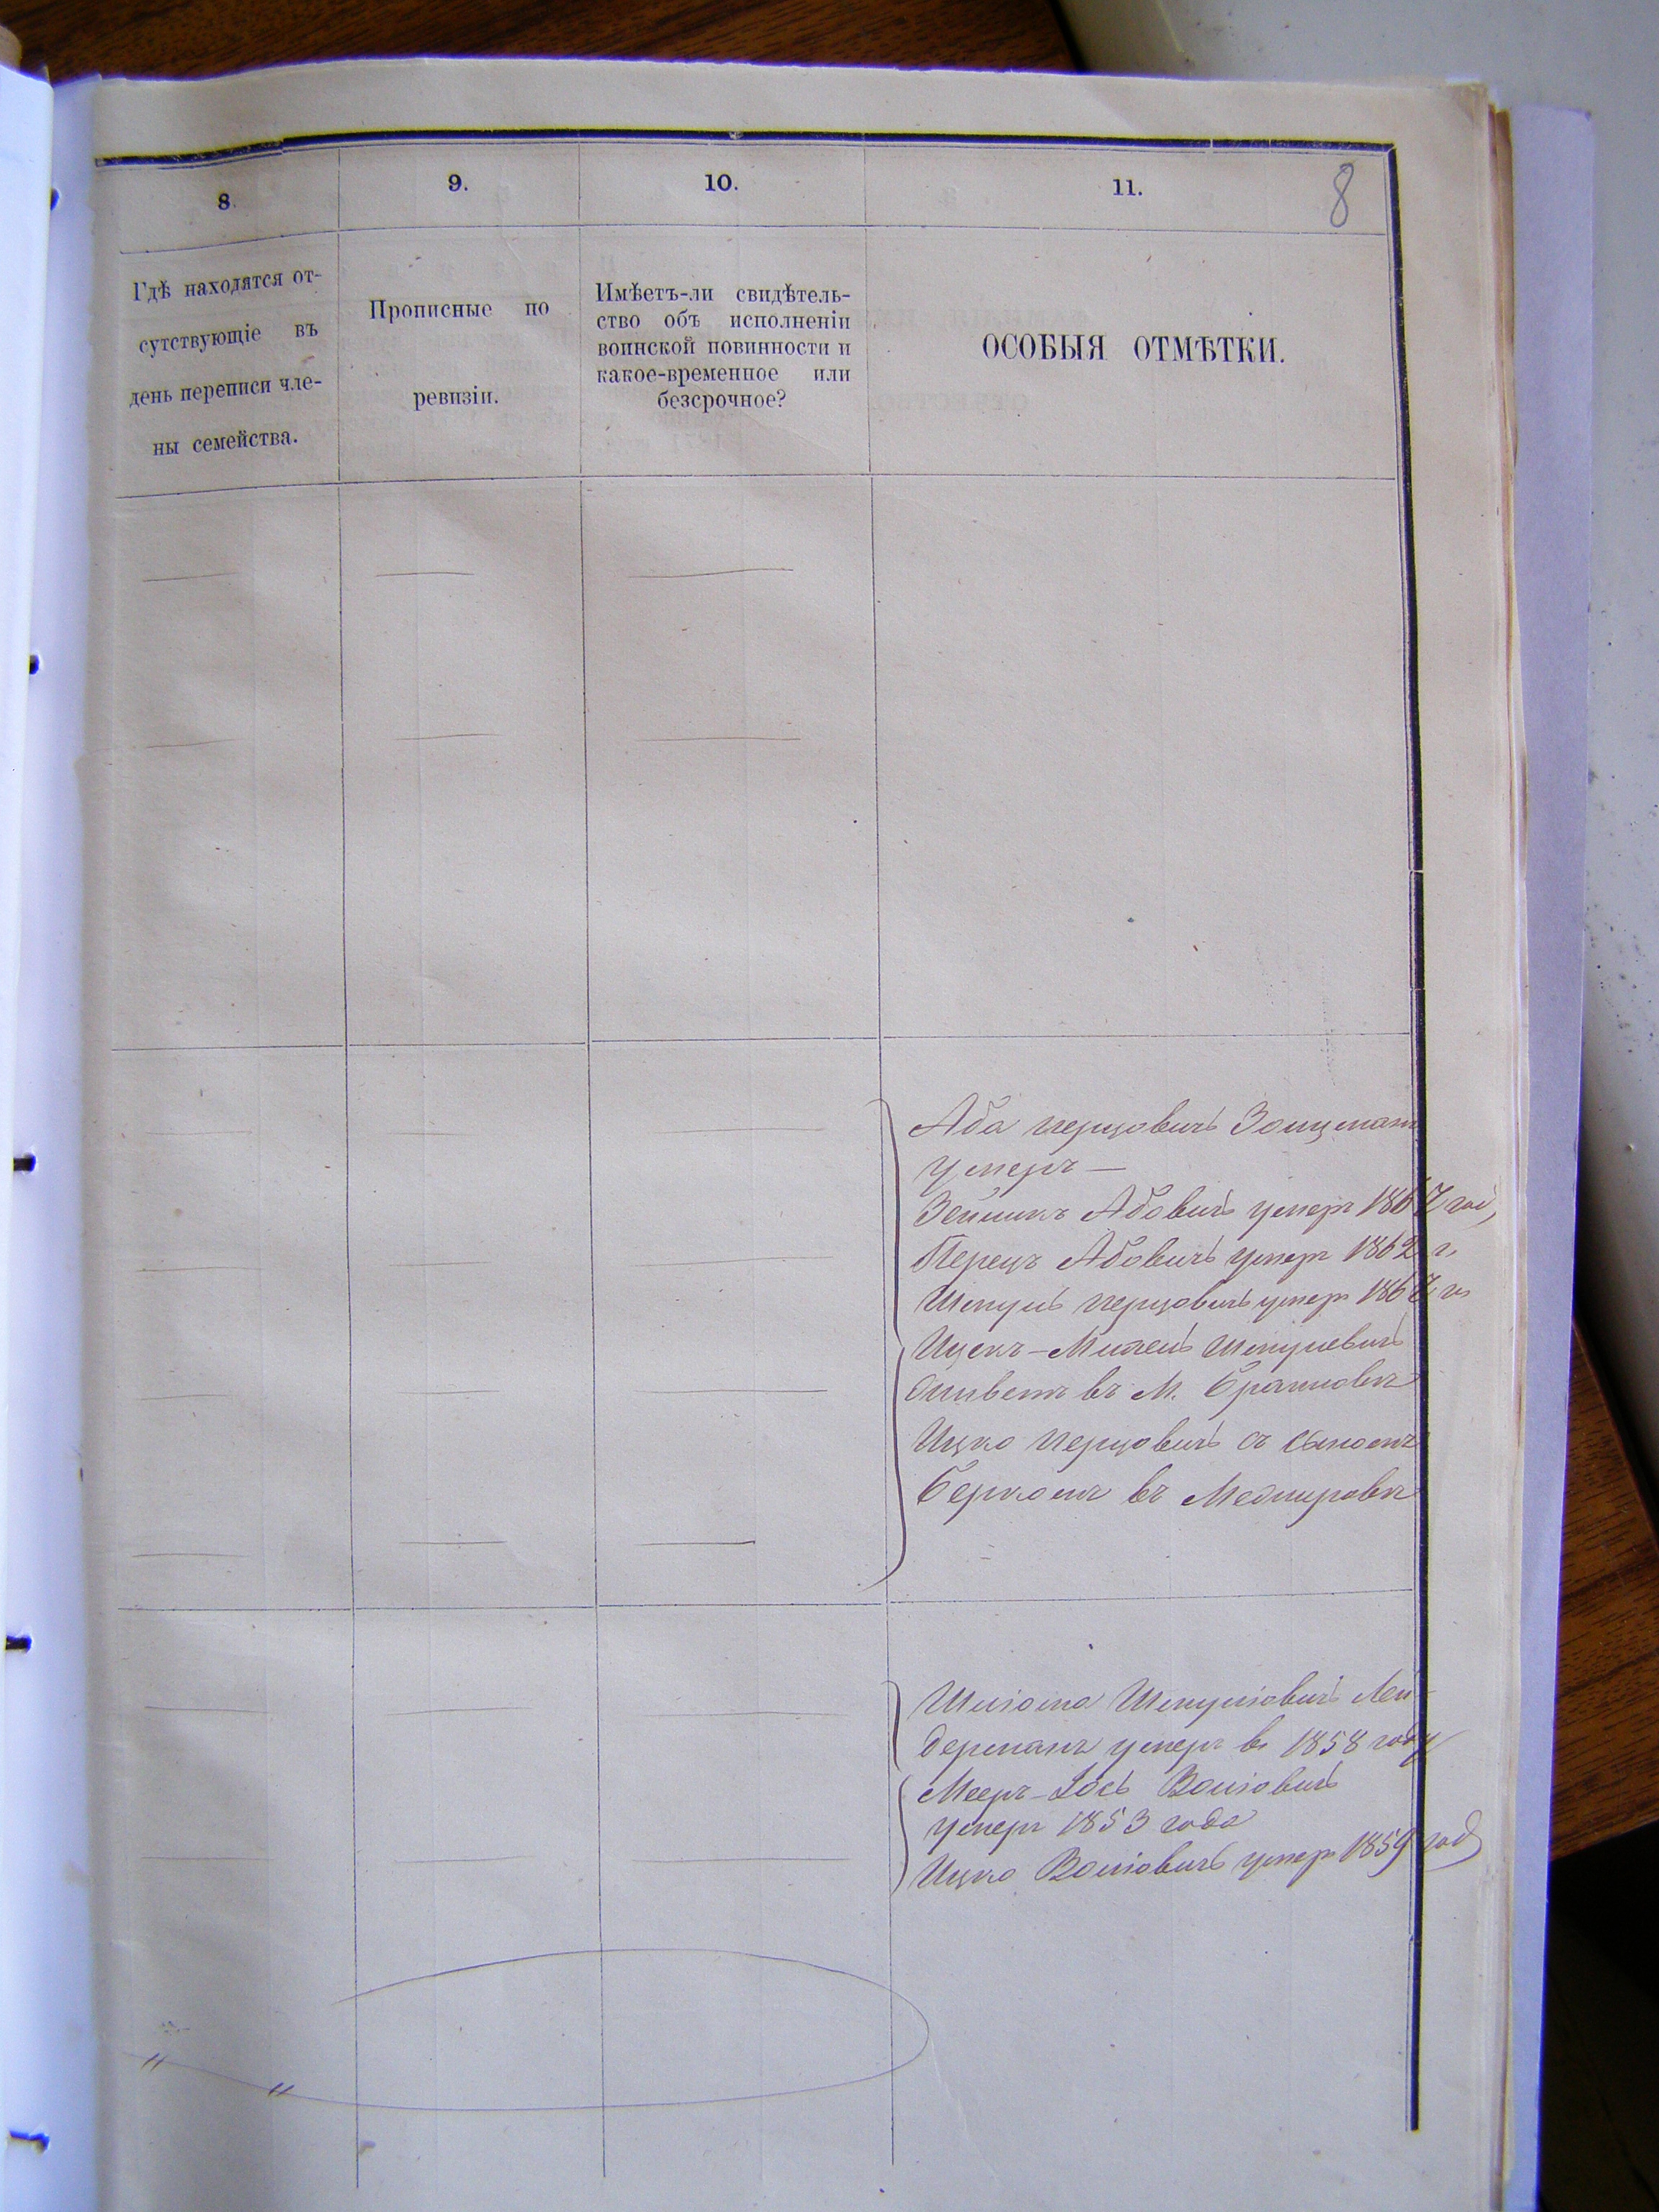 8
8.
9.
10.
11.
Гдѣ находятся от-
сутствующіе въ
день переписи чле-
ны семейства.
Прописные по
ревизіи.
Имѣетъ-ли свидѣтель-
ство объ исполненіи
воинской повинности и
какое-временное или
безсрочное?
ОСОБЫЯ ОТМѢТКИ.
Аба Перцовичъ
умеръ —
Абовичъ умеръ 1867 год
Перецъ Абовичъ умеръ 1862 г.
Шмуль Перцовичъ умеръ 1867 г.
Ицекъ-Мотель Шмулевичъ
живетъ въ М. Браиловѣ
Ицко Перцовичъ съ сыномъ
Беркомъ въ Меджировѣ
Шлiома Шмулiовичъ Лей-
дерманъ умеръ въ 1858 году
Мееръ-Іось Волiовичъ
умеръ 1853 года
Ицко Волiовичъ умеръ 1859 год